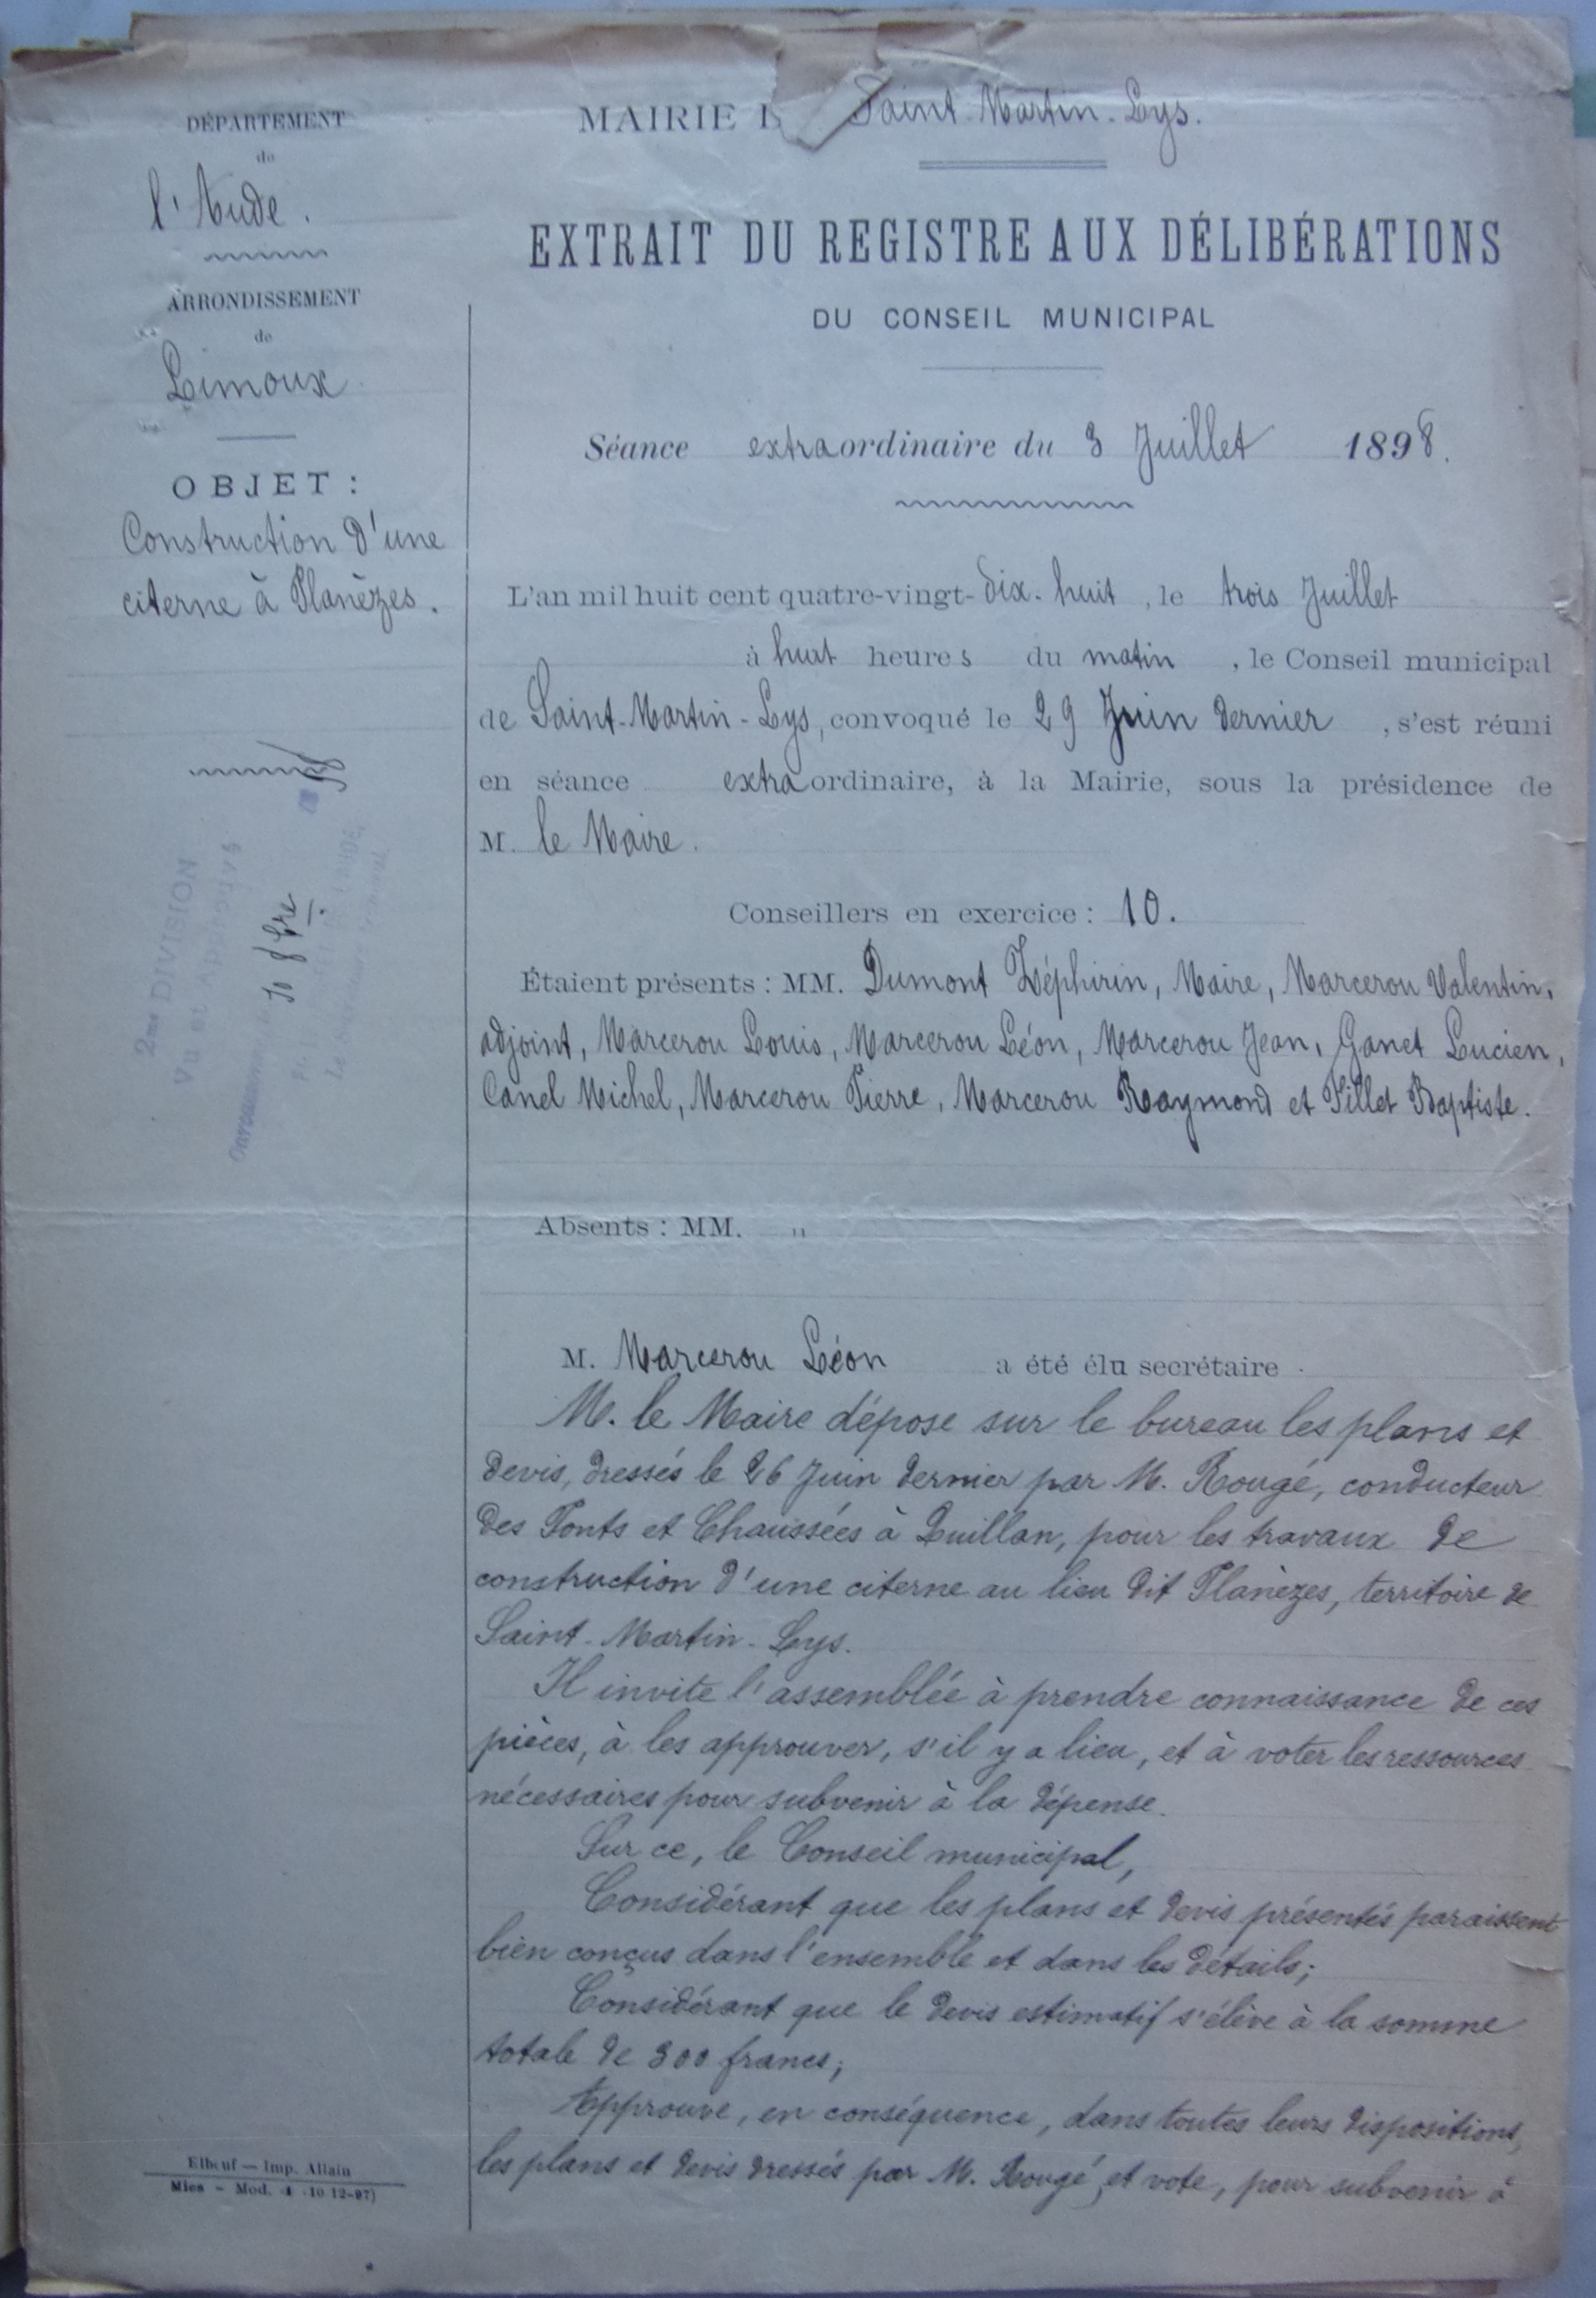 DÉPARTEMENT
de
l'Aude.
ARRONDISSEMENT
de
Limoux
OBJET :
Construction d'une
citerne à Planèzes.
2me DIVISION
Vu et Approuvé
10 8bre
Elbeuf — Imp. Allain
Mies - Mod. 4 (10 12-97)
MAIRIE Saint-Martin-Lys.
EXTRAIT DU REGISTRE AUX DÉLIBÉRATIONS
DU CONSEIL MUNICIPAL
Séance extraordinaire du 3 Juillet 1898.
L'an mil huit cent quatre-vingt-dix-huit, le trois Juillet
à huit heures du matin, le Conseil municipal
de Saint-Martin-Lys, convoqué le 29 Juin dernier, s'est réuni
en séance extraordinaire, à la Mairie, sous la présidence de
M. le Maire.
Conseillers en exercice : 10.
Étaient présents : MM. Dumont Zéphirin, Maire, Marcerou Valentin,
adjoint, Marcerou Louis, Marcerou Léon, Marcerou Jean, Ganet Lucien,
Canel Michel, Marcerou Pierre, Marcerou Raymond et Pillet Baptiste.
Absents : MM. "
M. Marcerou Léon a été élu secrétaire.
M. le Maire dépose sur le bureau les plans et
devis, dressés le 26 Juin dernier par M. Rougé, conducteur
des Ponts et Chaussées à Quillan, pour les travaux de
construction d'une citerne au lieu dit Planèzes, territoire de
Saint-Martin-Lys.
Il invite l'assemblée à prendre connaissance de ces
pièces, à les approuver, s'il y a lieu, et à voter les ressources
nécessaires pour subvenir à la dépense.
Sur ce, le Conseil municipal,
Considérant que les plans et devis présentés paraissent
bien conçus dans l'ensemble et dans les détails;
Considérant que le devis estimatif s'élève à la somme
totale de 300 francs;
Approuve, en conséquence, dans toutes leurs dispositions,
les plans et devis dressés par M. Rougé, et vote, pour subvenir à